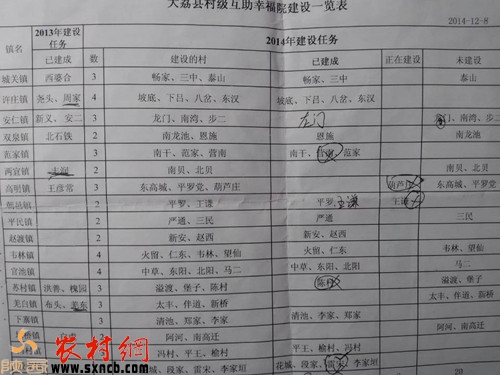 大荔县村级互助幸福院建设一览表
2014-12-8
镇名 2013年建设任务 2014年建设任务
已建成 数 建设的村 已建成 正在建设 未建设
城关镇 西婆合 3 畅家、三中、泰山 畅家、三中 泰山
许庄镇 尧头、周家 4 坡底、下吕、八岔、东汉 坡底、下吕、八岔、东汉
安仁镇 新义、安二 3 龙门、南湾、步二 龙门 门、南湾、步二
双泉镇 北石铁 2 南龙池、恩施 恩施 南龙池
范家镇 3 南干、范家、营南 南干、营南、范家
两宜镇 2 南贝、北贝 南贝、北贝
高明镇 王彦常 3 东高城、平罗党、葫芦庄 葫芦庄 东高城、平罗党
2 平罗、王谦 平罗、王谦 王谦
平民镇 2 严通、三民 严通 三民
赵渡镇 2 新安、赵西 新安、赵西
韦林镇 4 火留、仁东、韦林、望仙 火留、仁东 韦林、望仙
官池镇 4 中草、东阳、北阳、马二 中草、东阳、北阳 马二
苏村镇 洪善、槐园 3 溢渡、堡子、陈村 陈村 溢渡、堡子
羌白镇 布头、羌东 3 太丰、伴道、新桥 太丰、伴道、新桥
下寨镇 3 清池、郑家、李家 清池、郑家、李家
2 阿河、南高迁 阿河、南高迁
冯村、平王、榆村 平王、榆村、冯村
花城、段家、雷宋、李家垣 花城、段家、雷宋、李家垣
20
农村網
www.sxncb.com